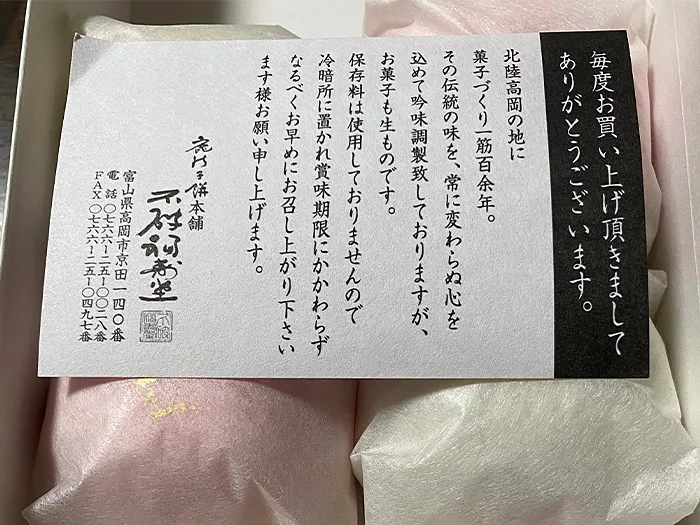 毎度お買い上げ頂きまして
ありがとうございます。
北陸高岡の地に
菓子づくり一筋百余年。
その伝統の味を、常に変わらぬ心を
込めて吟味調製致しておりますが、
お菓子も生ものです。
保存料は使用しておりませんので
冷暗所に置かれ賞味期限にかかわらず
なるべくお早めにお召し上がり下さい
ます様お願い申し上げます。
鹿の子餅本舗
不破福寿堂
富山県高岡市京田一四〇番
電話〇七六六ー二五ー〇〇二八番
FAX〇七六六ー二五ー〇四九七番